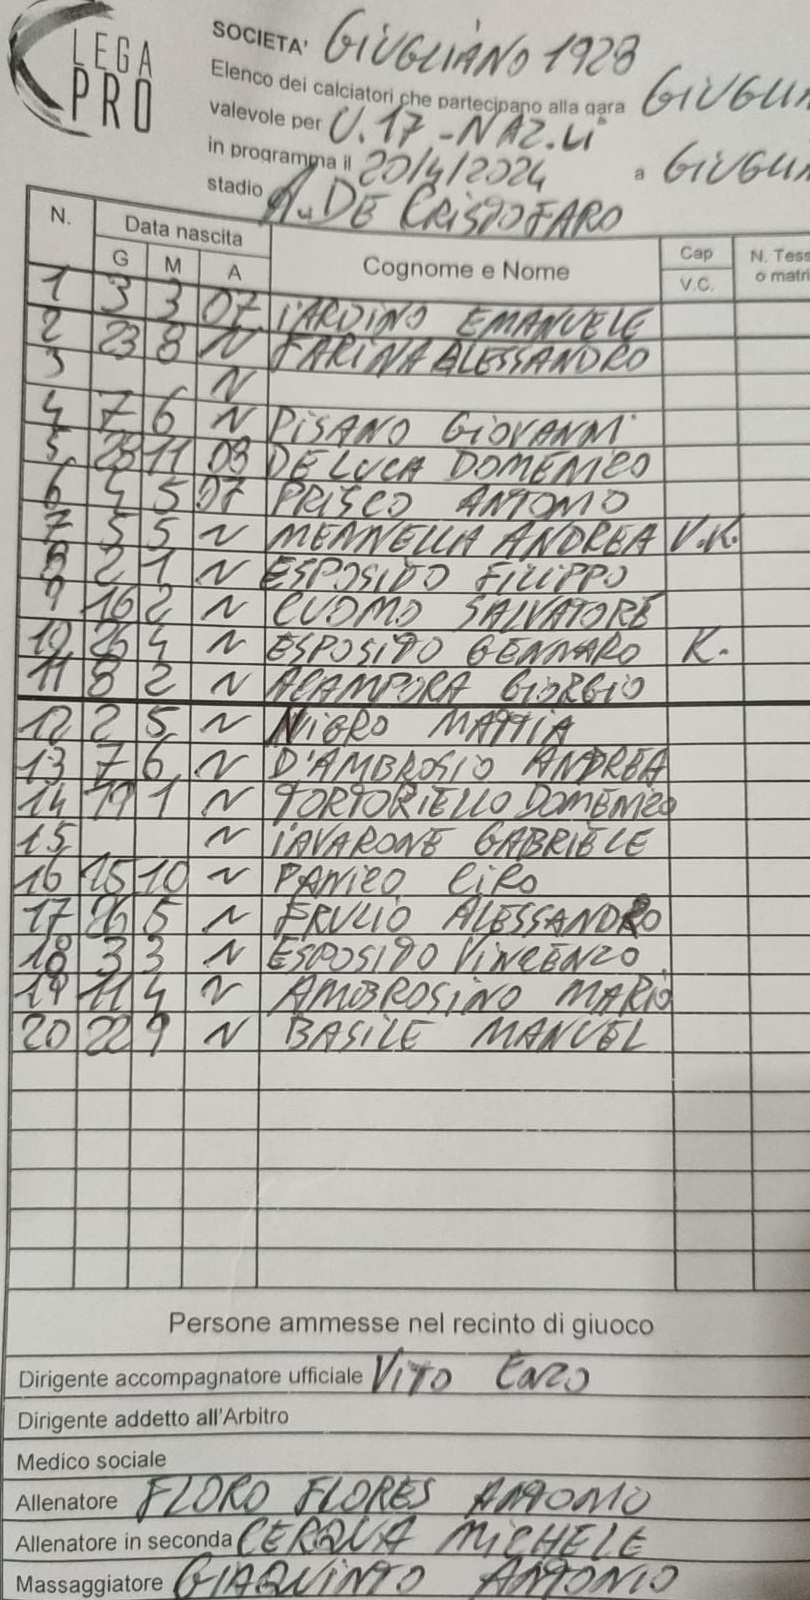 LEGA PRO
SOCIETA' GIUGLIANO 1928
Elenco dei calciatori che partecipano alla gara GIUGLI
valevole per U.17 - NAZ.LI
in programma il 20/4/2024 a GIUGLI
stadio A. DE CRISTOFARO
N. Data nascita Cognome e Nome Cap N. Tess
G M A V.C. o matri
1 3 3 07 IARDINO EMANUELE
2 23 8 ~ FARINA ALESSANDRO
3 ~
4 7 6 ~ PISANO GIOVANNI
5 23 11 08 DE LUCA DOMENICO
6 4 5 07 PRISCO ANTONIO
7 5 5 ~ MENNELLA ANDREA V.K.
8 2 1 ~ ESPOSITO FILIPPO
9 16 2 ~ CUOMO SALVATORE
10 26 4 ~ ESPOSITO GENNARO K.
11 8 2 ~ ACAMPORA GIORGIO
12 2 5 ~ NIGRO MATTIA
13 7 6 ~ D'AMBROSIO ANDREA
14 19 1 ~ TORTORIELLO DOMENICO
15 ~ IAVARONE GABRIELE
16 15 10 ~ PANICO CIRO
17 26 5 ~ FRULIO ALESSANDRO
18 3 3 ~ ESPOSITO VINCENZO
19 11 4 ~ AMBROSINO MARIO
20 22 9 ~ BASILE MANUEL
Persone ammesse nel recinto di giuoco
Dirigente accompagnatore ufficiale VITO ENZO
Dirigente addetto all'Arbitro
Medico sociale
Allenatore FLORO FLORES ANTONIO
Allenatore in seconda CERQUA MICHELE
Massaggiatore GIAQUINTO ANTONIO